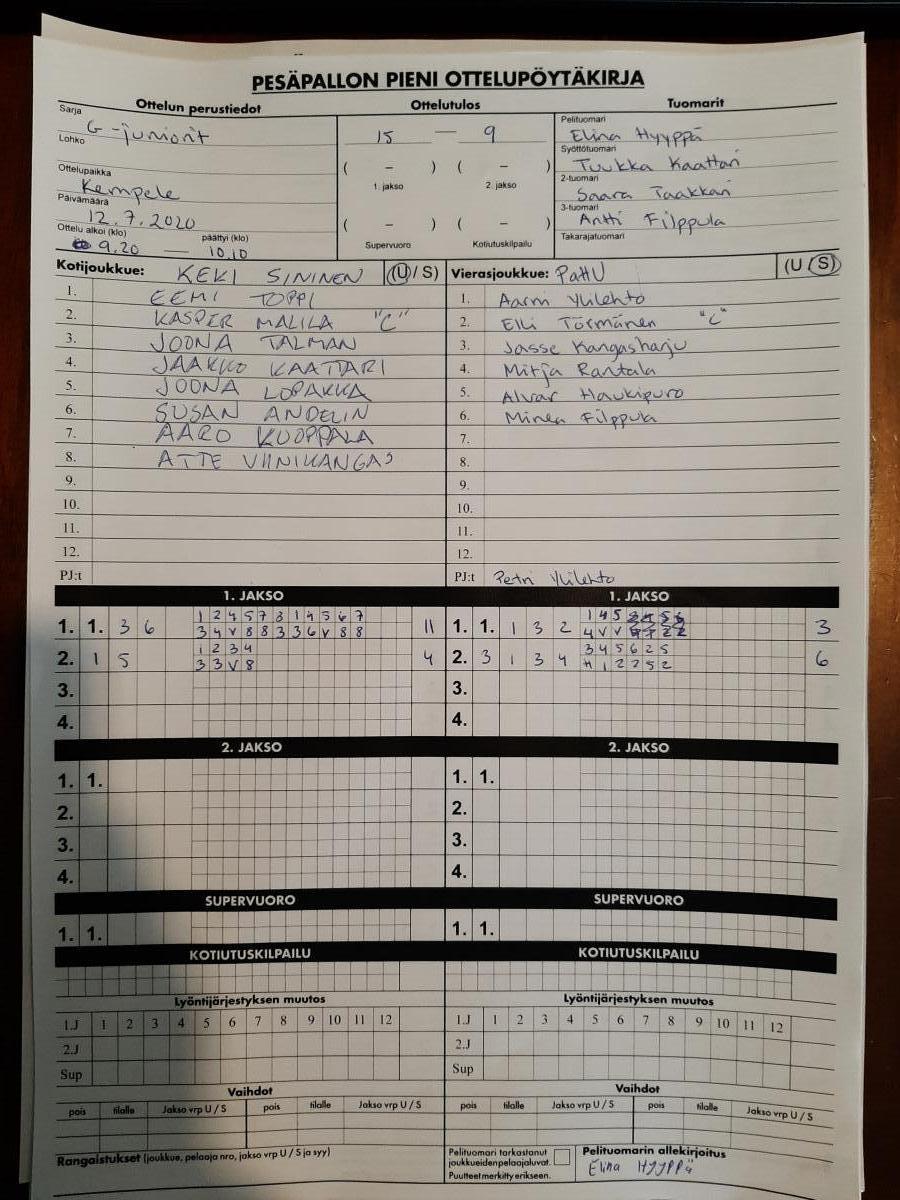 PESÄPALLON PIENI OTTELUPÖYTÄKIRJA
Ottelun perustiedot
Ottelutulos
Tuomarit
Sarja G-juniorit
Lohko
Ottelupaikka
Kempele
Päivämäärä
12.7.2020
Ottelu alkoi (klo) päättyi (klo)
9.20 — 10.10
15 — 9
( – ) ( – )
1. jakso 2. jakso
( – ) ( – )
Supervuoro Kotiutuskilpailu
Pelituomari
Elina Hyyppä
Syöttötuomari
Tuukka Kaattari
2-tuomari
Saara Taakkari
3-tuomari
Antti Filppula
Takarajatuomari
Kotijoukkue: KEKI SININEN (U / S)
1. EEMI TOPPI
2. KASPER MALILA "C"
3. JOONA TALMAN
4. JAAKKO KAATTARI
5. JOONA LOPAKKA
6. SUSAN ANDELIN
7. AARO KUOPPALA
8. ATTE VIINIKANGAS
9.
10.
11.
12.
PJ:t
Vierasjoukkue: PattU (U / S)
1. Aarni Ylilehto
2. Elli Törmänen "C"
3. Jasse Kangasharju
4. Mitja Rantala
5. Alvar Haukipuro
6. Minea Filppula
7.
8.
9.
10.
11.
12.
PJ:t Petri Ylilehto
1. JAKSO
1. 1. 3 6 1 2 4 5 7 8 1 4 5 6 7 11
3 4 V 8 8 3 3 6 V 8 8
2. 1 5 1 2 3 4 4
3 3 V 8
3.
4.
1. JAKSO
1. 1. 1 3 2 1 4 5 3
4 V V
2. 3 1 3 4 3 4 5 6 2 5 6
1 2 2 5 2
3.
4.
2. JAKSO
1. 1.
2.
3.
4.
2. JAKSO
1. 1.
2.
3.
4.
SUPERVUORO
1. 1.
SUPERVUORO
1. 1.
KOTIUTUSKILPAILU
KOTIUTUSKILPAILU
Lyöntijärjestyksen muutos
1.J 1 2 3 4 5 6 7 8 9 10 11 12
2.J
Sup
Lyöntijärjestyksen muutos
1.J 1 2 3 4 5 6 7 8 9 10 11 12
2.J
Sup
Vaihdot
pois tilalle Jakso vrp U / S pois tilalle Jakso vrp U / S
Vaihdot
pois tilalle Jakso vrp U / S pois tilalle Jakso vrp U / S
Rangaistukset (joukkue, pelaaja nro, jakso vrp U / S ja syy)
Pelituomari tarkastanut
joukkueiden pelaajaluvat.
Puutteet merkitty erikseen.
Pelituomarin allekirjoitus
Elina Hyyppä